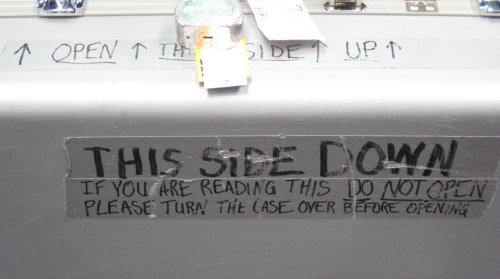 ↑ OPEN ↑ THIS SIDE ↑ UP ↑
THIS SIDE DOWN
IF YOU ARE READING THIS DO NOT OPEN
PLEASE TURN THE CASE OVER BEFORE OPENING